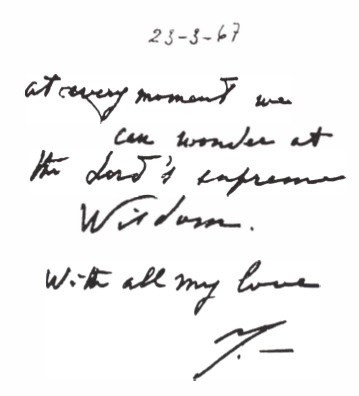 23-3-67
at every moment we
can wonder at
the Lord's supreme
Wisdom.
With all my love